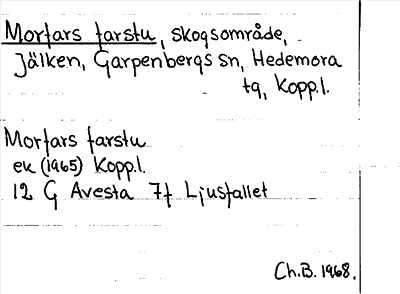 Morfars farstu, skogsområde,
Jälken, Garpenbergs sn, Hedemora
tg, Kopp.l.
Morfars farstu
ek (1965) Kopp.l.
12 G Avesta 7f Ljusfallet
Ch.B. 1968.